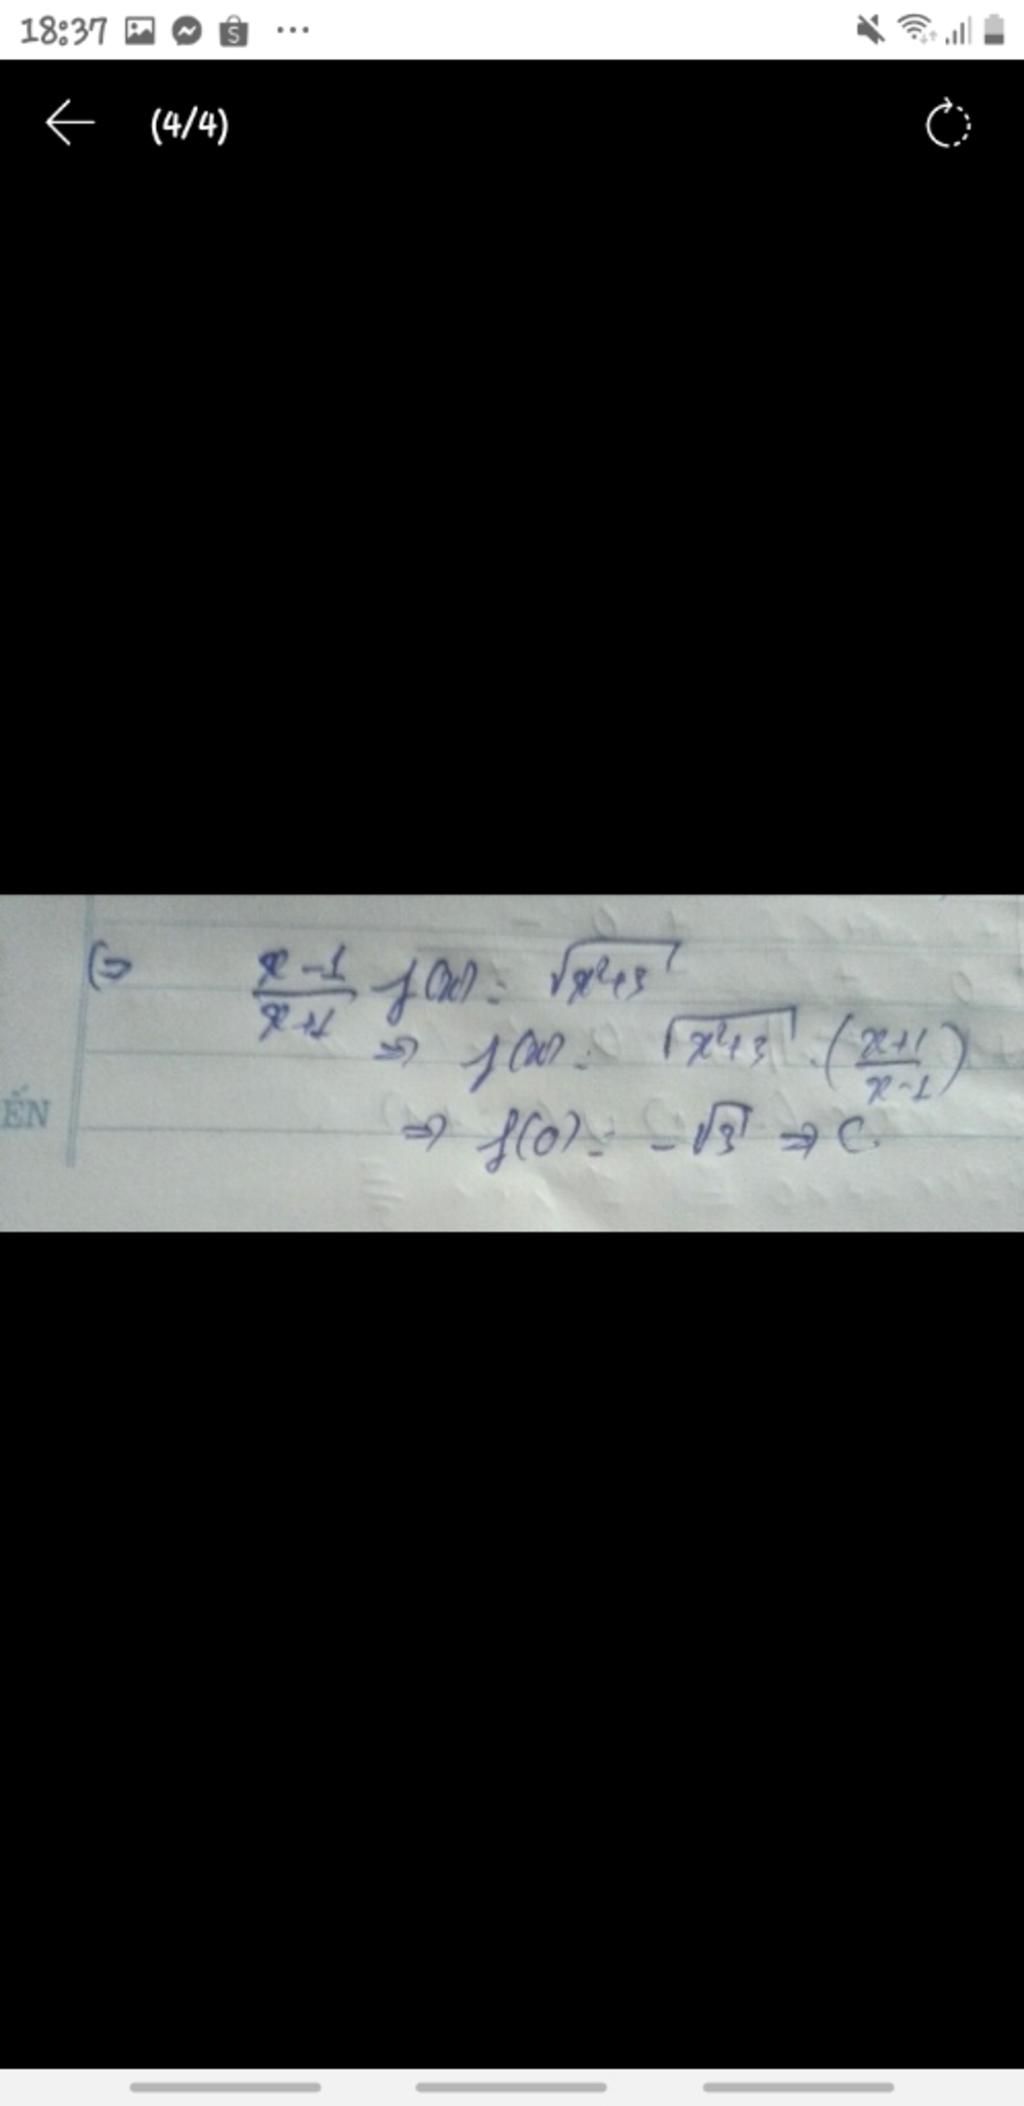 18:37
(4/4)
(=> x-1/x+1 f(x) = √x²+3
=> f(x) = √x²+3 . (x+1/x-1)
ẾN
=> f(0) = -√3 => C.